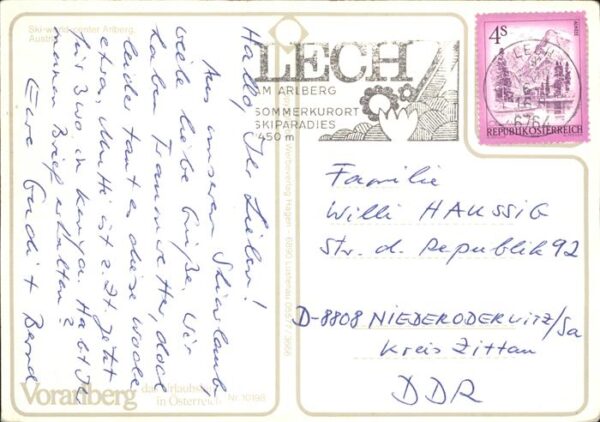 Ski-world-center Arlberg,
Austria
Hallo, Ihr Lieben!
Aus unserem Skiurlaub
viele liebe Grüße. Wir
haben Traumwetter, doch
leider taut es diese Woche
etwas, Mutti ist z. Zt. jetzt
für 3 Wo in Kenya. Habt Ihr
meinen Brief erhalten?
Eure Gudi + Bernd
Voralberg
das Urlaubs
in Österreich
Nr. 10198
LECH
AM ARLBERG
SOMMERKURORT
SKIPARADIES
1450 m
4S
REPUBLIK ÖSTERREICH
LECH
6764
Familie
Willi HAUSSIG
Str. d. Republik 92
D-8808 NIEDERODERWITZ/Sa
Kreis Zittau
DDR